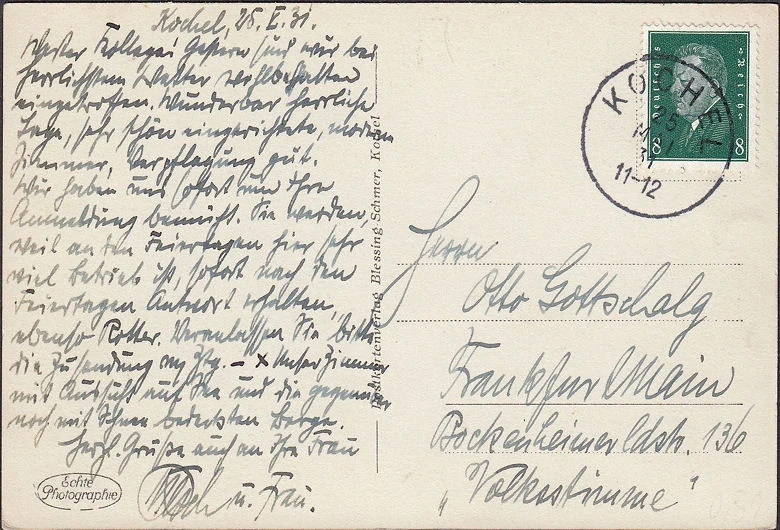 Kochel, 25.V.31.
Werter Kollege! Gestern sind wir bei
herrlichstem Wetter wohlbehalten
eingetroffen. Wunderbar herrliche
Lage, sehr schön eingerichtete, moderne
Zimmer, Verpflegung gut.
Wir haben uns sofort um Ihre
Anmeldung bemüht. Sie werden,
weil an den Feiertagen hier sehr
viel Betrieb ist, sofort nach den
Feiertagen Antwort erhalten,
ebenso Rotter. Veranlassen Sie bitte
die Zusendung Ztg. – x Unser Zimmer
mit Aussicht auf See und die gegenüber
noch mit Schnee bedeckten Berge.
Herzl. Grüße auch an Ihre Frau
u. Frau.
Echte
Photographie
Postkartenverlag Blessing Schmer, Kochel
Deutsches Reich
8 8
KOCHEL
25
31
11-12
Herrn
Otto Gottschalg
Frankfurt Main
Bockenheimerldstr. 136
„Volksstimme"